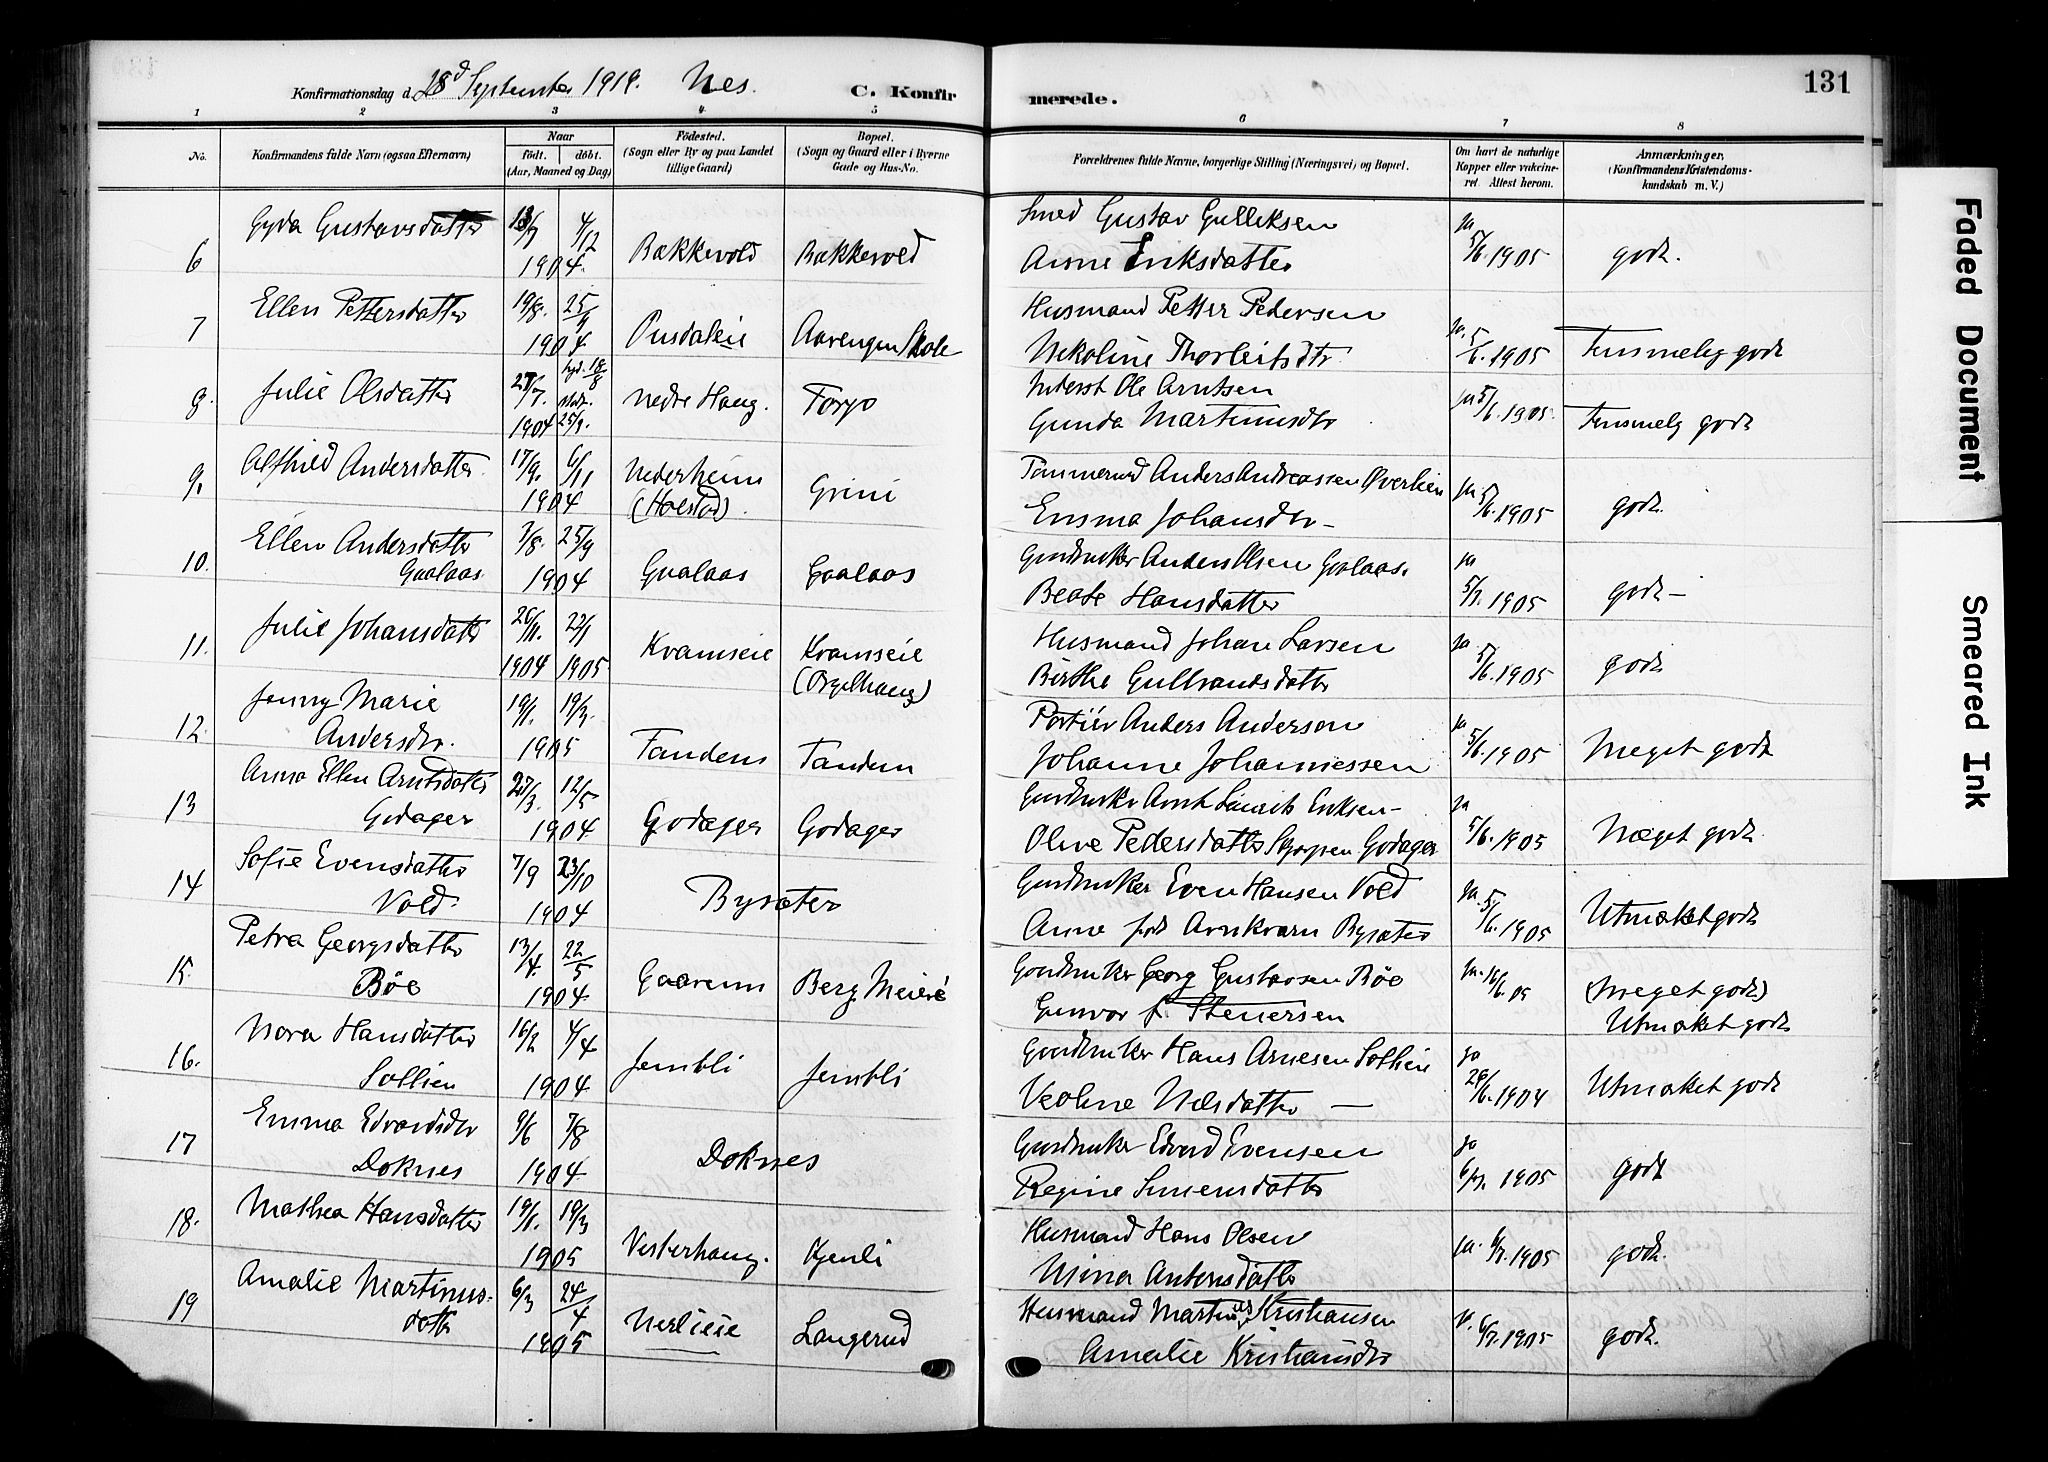 Konfirmationsdag d. 28d September 1919. Nes. C. Konfirmerede. 131
1 2 3 4 5 6 7 8
No. Konfirmandens fulde Navn (ogsaa Efternavn) Naar født. døbt. (Aar, Maaned og Dag) Fødested. (Sogn eller By og paa Landet tillige Gaard) Bopæl. (Sogn og Gaard eller i Byerne Gade og Hus-No. Forældrenes fulde Navne, borgerlige Stilling (Næringsvei) og Bopæl. Om havt de naturlige Kopper eller vakcineret. Attest herom. Anmærkninger, (Konfirmandens Kristendomskundskab m. V.)
Gyda Gustavsdatter 13/9 4/12 Smed Gustav Gulliksen ja
6 1904 Bækkevold Bækkevold Anne Eriksdatter 5/6. 1905 godt.
Ellen Pettersdatter 19/8. 25/9 Husmand Petter Pedersen
7 1904 Pusdaleie Aarengen Skole Nekoline Thorleifsdtr. ja. 5/6. 1905 Temmelig godt
Julie Olsdatter 27/7. 18/8 Inderst Ole Arntsen
8. 1904 25/9. nedre Haug. Torgo Gunda Martinusdtr ja 5/6. 1905. Temmelig godt
Alfhild Andersdatter. 17/9. 6/11 Nederheim Tømmermd Anders Andreassen Øverlien
9. 1904 (Halstad). Grini Emma Johansdtr - ja 5/6. 1905 godt.
Ellen Andersdatter 7/8. 25/9 Gardbruker Anders Olsen Gaalaas. ja
10. Gaalaas 1904 Gaalaas Gaalaas Beate Hansdatter 5/7. 1905 godt -
Julie Johansdatter 26/11. 22/1 Husmand Johan Larsen ja
11. 1904 1905 Kvamseie Kvamseie (Ørgelhaug) Birthe Gulbrandsdatter 5/6. 1905 godt
Jenny Marie 19/1. 19/3. Portiér Anders Anderson ja
12. Andersdtr. 1905 Tandem Tandem Johanne Johannessen 5/6. 1905 Meget godt
Anna Ellen Arntsdatter 27/3. 12/5 Gardbruker Arnt Laurits Eriksen - ja
13 Godager 1904 Godager Godager Oline Pedersdatter Godager 5/6. 1905 Meget godt
Sofie Evensdatter 7/9 23/10 Gardbruker Even Hansen Vold ja.
14 Vold. 1904 Bysæter Anne født Arnkværn Bysæter 5/6. 1905 Utmærket godt
Petra Georgsdatter 13/4. 22/5 Gardbruker Georg Gustavsen Bøe ja. 16/6. 05
15. Bøe 1904 Gaarum Berg Meieri Gunvor f. Stenersen (meget godt) Utmærket godt
Nora Hansdatter 16/2 4/4 Gardbruker Hans Arnesen Sollien ja
16. Sollien 1904 Jembli Jembli Veoline Nilsdatter - 28/6. 1904 Utmærket godt
Emma Edvardsdtr 9/6 7/8 Gardbruker Edvard Evensen ja
17 Doknes 1904 Doknes Regine Simensdatter 6/7. 1905 godt
Mathea Hansdatter 19/1. 19/3 Husmand Hans Olsen
18. 1905 Vesterhaug. Kjenli Mina Antonsdatter ja. 6/7. 1905 godt.
Amalie Martinus- 6/3 24/4 Husmand Martinus Kristiansen
19 datter 1905 Nerlieie Langerud Amalie Kristiansdtr 6/7. 1905 godt.
Faded Document
Smeared Ink